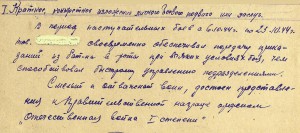 I. Краткое, конкретное изложение личного боевого подвига или заслуг.
В период наступательных боев с 6.10.44 г. по 23.10.44 г.
своевременно обеспечивал передачу приказаний
из батальона в роты при любых условиях боя, чем
способствовал быстрому управлению подразделениями.
Смелый и отважный воин, достоин представления
к Правительственной награде орденом
"Отечественная война I степени"